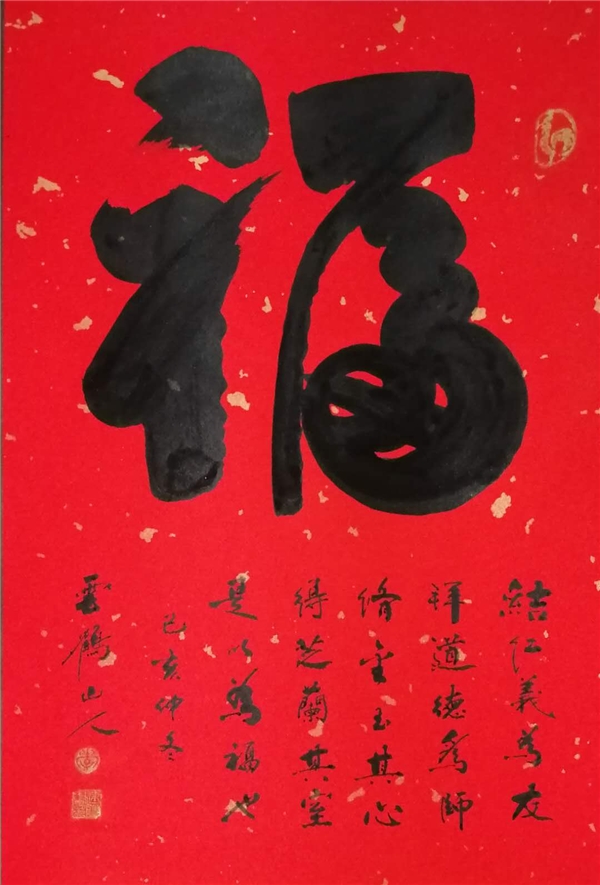 福
結仁義為友
拜道德為師
脩金玉其心
得芝蘭其室
是以為福也
己亥仲冬
雲鶴山人